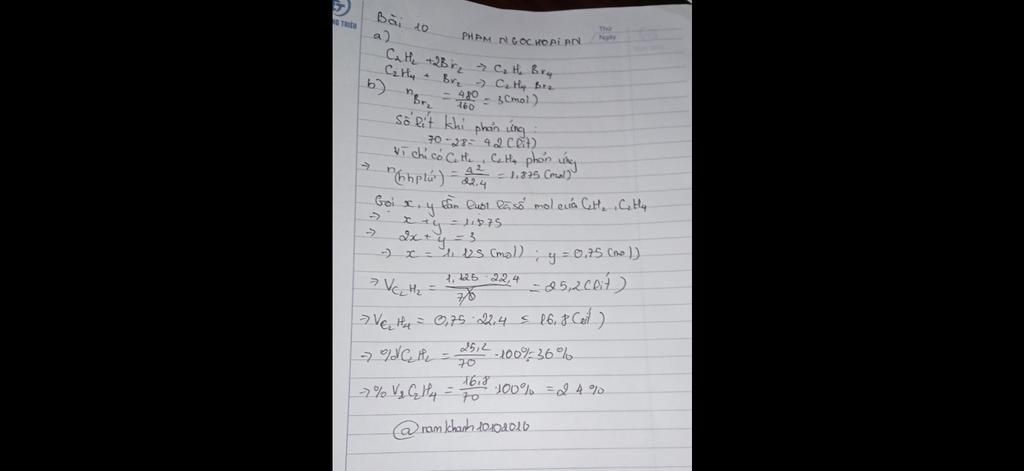 NG TRIỀU
Thứ
Ngày
Bài 10
PHẠM NGỌC HOÀI AN
a)
C₂H₂ + 2Br₂ → C₂H₂Br₄
C₂H₄ + Br₂ → C₂H₄Br₂
b) nBr₂ = 480/160 = 3 (mol)
Số lít khí phản ứng:
70 - 28 = 42 (lít)
Vì chỉ có C₂H₂, C₂H₄ phản ứng
→ n(hhpứ) = 42/22,4 = 1,875 (mol)
Gọi x, y lần lượt là số mol của C₂H₂, C₂H₄
→ x + y = 1,875
→ 2x + y = 3
→ x = 1,125 (mol); y = 0,75 (mol)
→ VC₂H₂ = 1,125 · 22,4 = 25,2 (lít)
→ VC₂H₄ = 0,75 · 22,4 = 16,8 (lít)
→ %VC₂H₂ = 25,2/70 · 100% = 36%
→ %V₂C₂H₄ = 16,8/70 · 100% = 24%
@namkhanh10102016